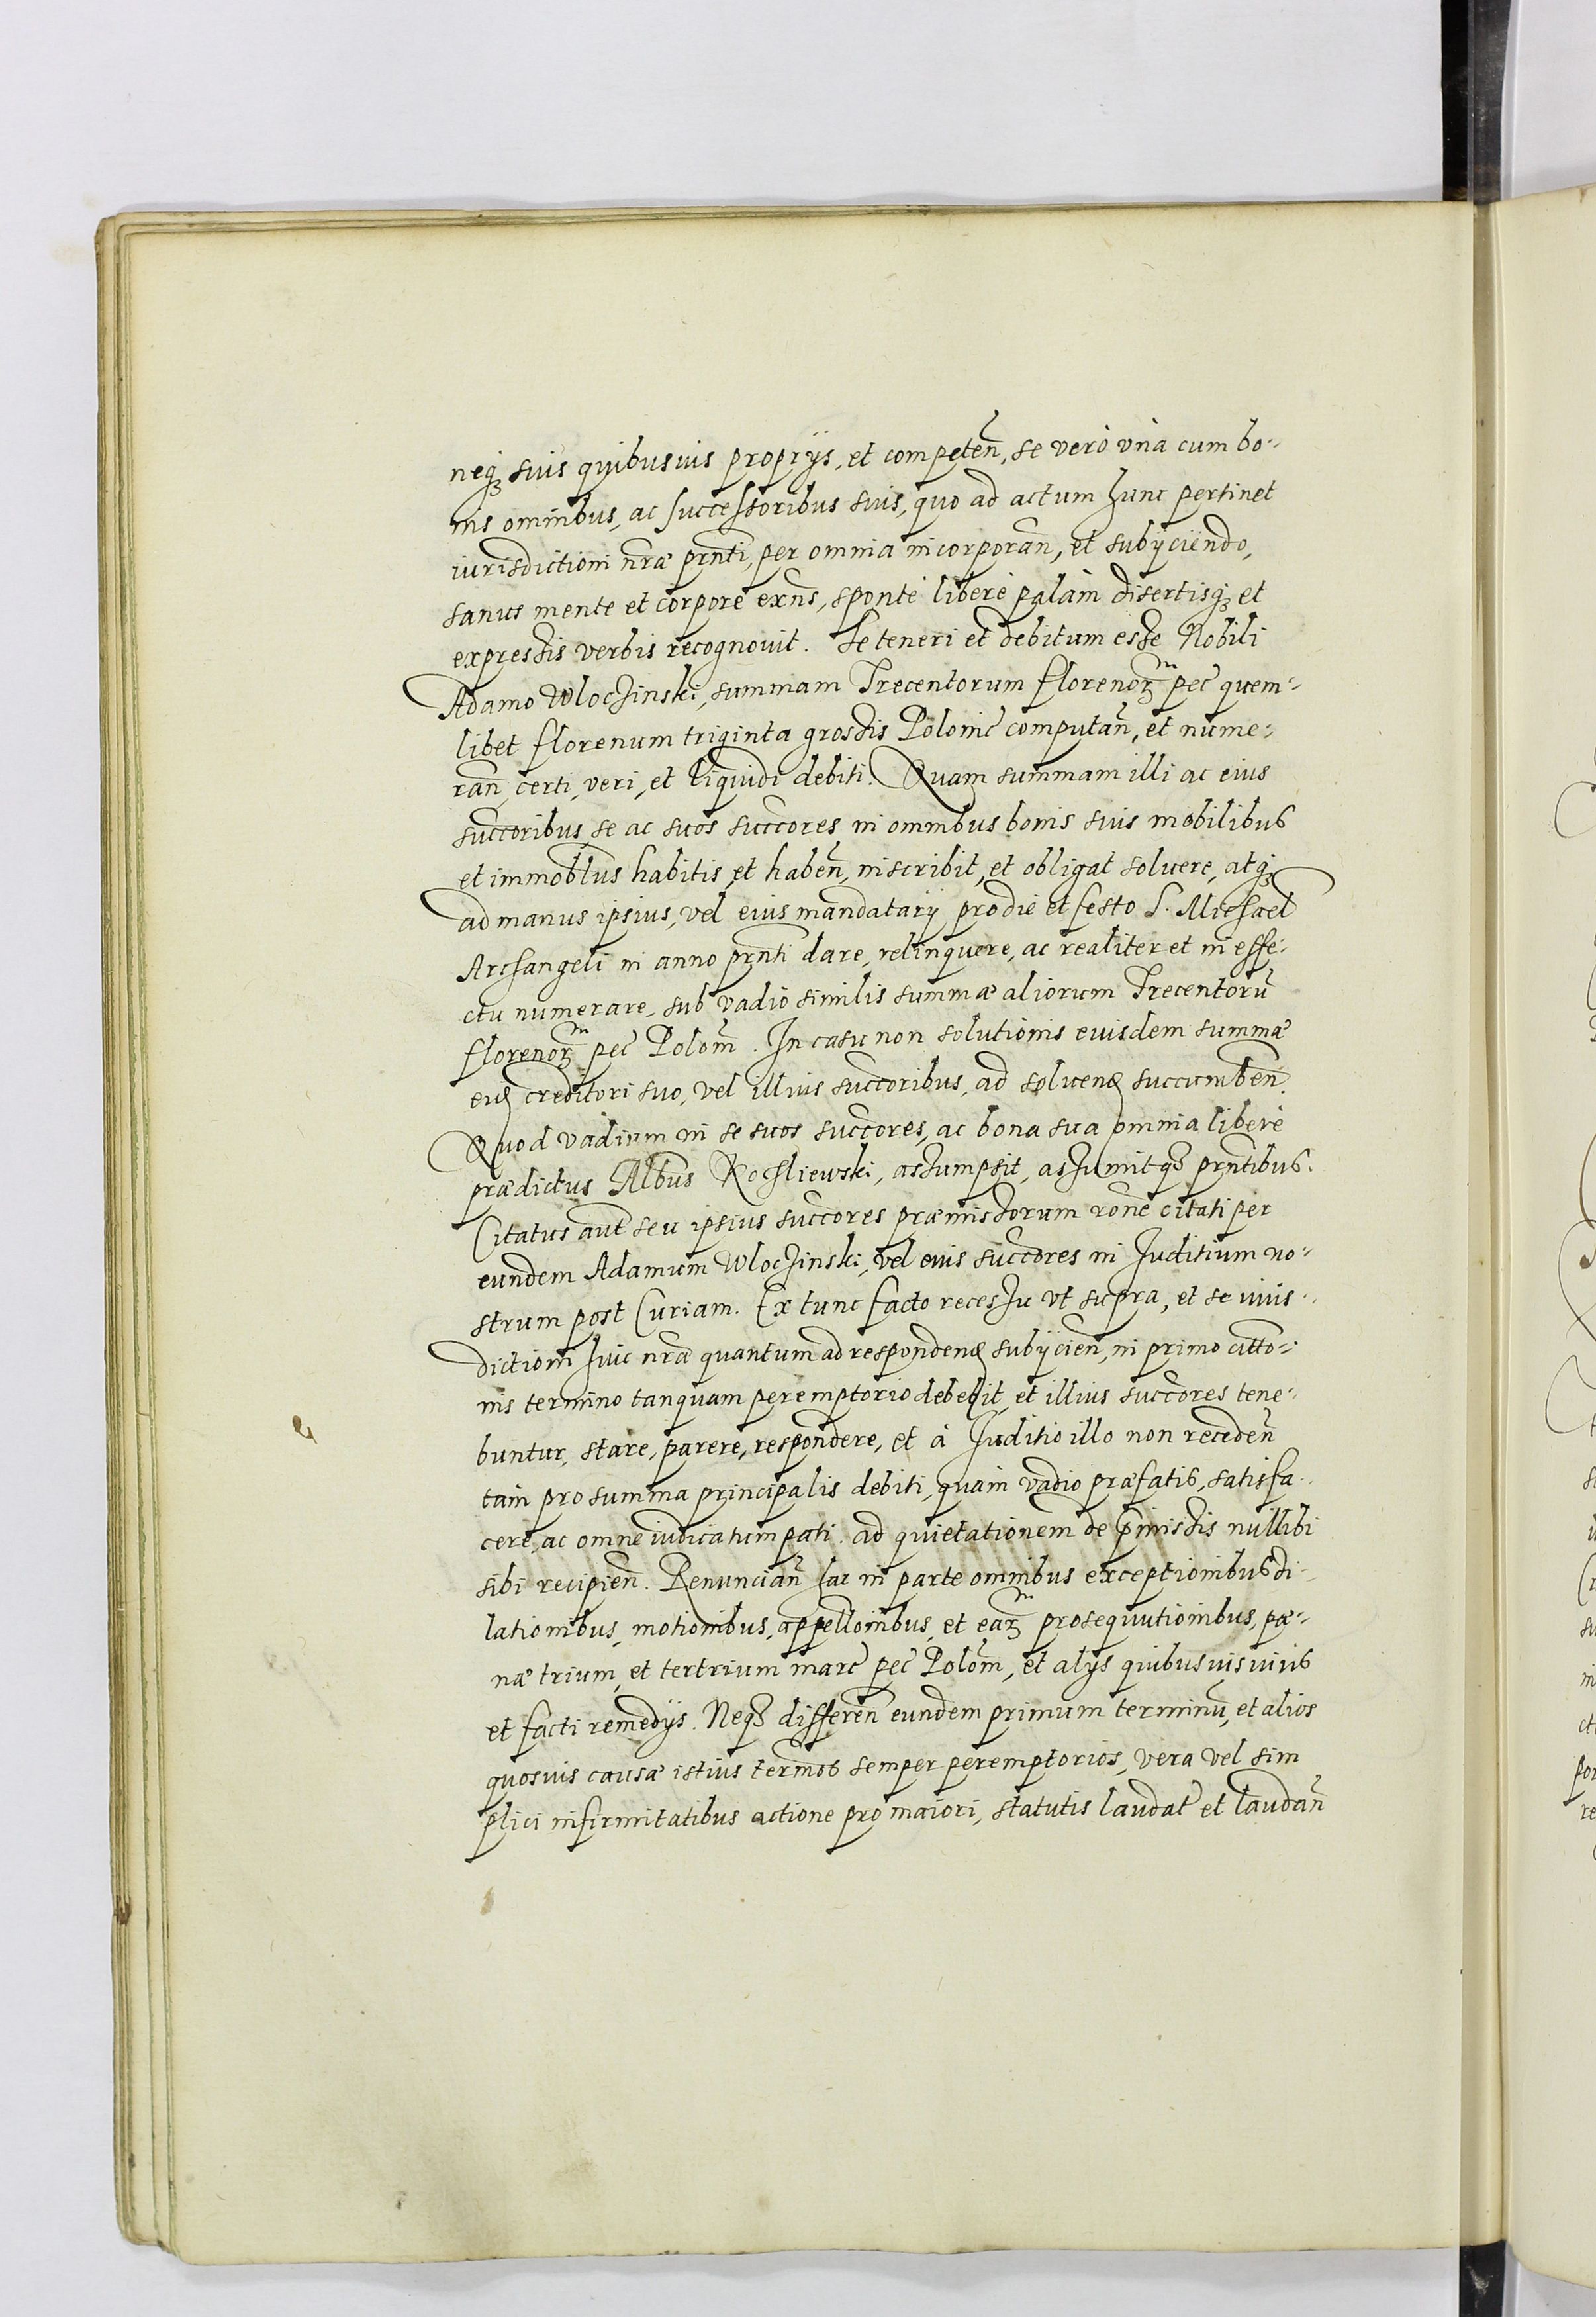 neq₃ suis quibusuis proprÿs, et competeñ, se verò vnà cum bo-
nis omnibus, ac successoribus suis, quo ad actum hunc pertinet
iurisdictioni nr̃æ prñti, per omnia incorporañ, et subÿciendo,
sanus mente et corpore exñs, spontè liberè palàm disertisq₃ et
expressis verbis recognouit. Se teneri et debitum esse Nobili
Adamo Wloczinski, summam Trecentorum florenoꝝ pec̃ quem-
libet florenum triginta grossis Polonic̃ computañ, et nume-
rañ, certi, veri, et liquidi debiti. Quam summam illi ac eius
succ̃oribus se ac suos succ̃ores in omnibus bonis suis mobilibus
et immobl̃bus habitis, et habeñ, inscribit, et obligat soluere, atq₃
ad manus ipsius, vel eius mandatarÿ pro die et festo S. Michael
Archangeli in anno prñti dare, relinquere, ac realiter et in effe-
ctu numerare, sub vadio similis summæ aliorum Trecentorũ
florenoꝝ pec̃ Polom̃. In casu non solutionis eiusdem summæ
eid creditori suo, vel illius succ̃oribus, ad soluend succumbeñ.
Quod vadium in se suos succ̃ores, ac bona sua omnia liberè
prædictus Alb̃us Kochliewski, assumpsit, assumitq₃ prñtibus.
Citatus aut̃ seu ipsius succ̃ores præmissorum rõne citati per
eundem Adamum Wloczinski, vel eius succ̃ores in Juditium no-
strum post Curiam. Ex tunc facto recessu vt supra, et se iuris-
dictioni huic nr̃æ quantum ad respondend subÿcieñ, in primo citt̃o-
nis termino tanquam peremptorio debebit, et illius succ̃ores tene-
buntur, stare, parere, respondere, et à Juditio illo non recedeñ
tam pro summa principalis debiti, quàm vadio præfatis, satisfa-
cere, ac omne iudicatum pati. ad quietationem de p̃missis nullibi
sibi recipieñ. Renunciañ hac in parte omnibus exceptionibus di-
lationibus, motionibus, appellõnibus, et eaꝝ prosequutionibus, pœ-
næ trium, et tertrium marc̃ pec̃ Polom̃, et alÿs quibusuis iuris
et facti remedÿs. Neq₃ differeñ eundem primum terminũ, et alios
quosuis causæ istius termõs semper peremptorios, vera vel sim
plici infirmitatibus actione pro maiori, statutis laudat̃ et laudañ